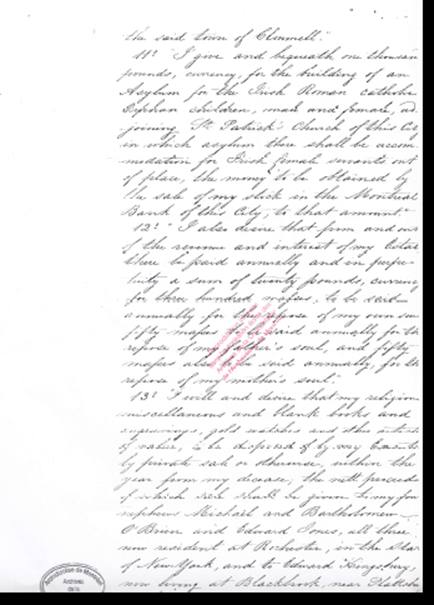 the said town of Clonmell."
11º "I give and bequeath one thousand
pounds, currency, for the building of an
Asylum for the Irish Roman catholic
Orphan children, male and female, ad-
joining St Patrick's Church of this City
in which asylum there shall be accom-
modation for Irish female servants out
of place, the money to be obtained by
the sale of my stock in the Montreal
Bank of this City, to that amount."
12º "I also desire that from and out
of the revenue and interest of my Estate
there be paid annually and in perpe-
tuity a sum of twenty pounds, currency
for three hundred masses, to be said
annually for the repose of my own soul
fifty masses to be said annually for the
repose of my father's soul, and fifty
masses also to be said annually, for the
repose of my mother's soul."
13º "I will and desire that my religious
miscellaneous and blank books and
engravings, gold watches and other articles
of value, to be disposed of by my Executors
by private sale or otherwise, within the
year from my decease, the nett proceeds
of which sale shall be given to my four
nephews Michael and Bartholomew
O'Brien and Edward Jones, all three
now resident at Rochester, in the State
of New York, and to Edward Kingsbury,
now living at Blackbrook, near Plattsbu
Archidiocèse de Montréal
Archives
de la